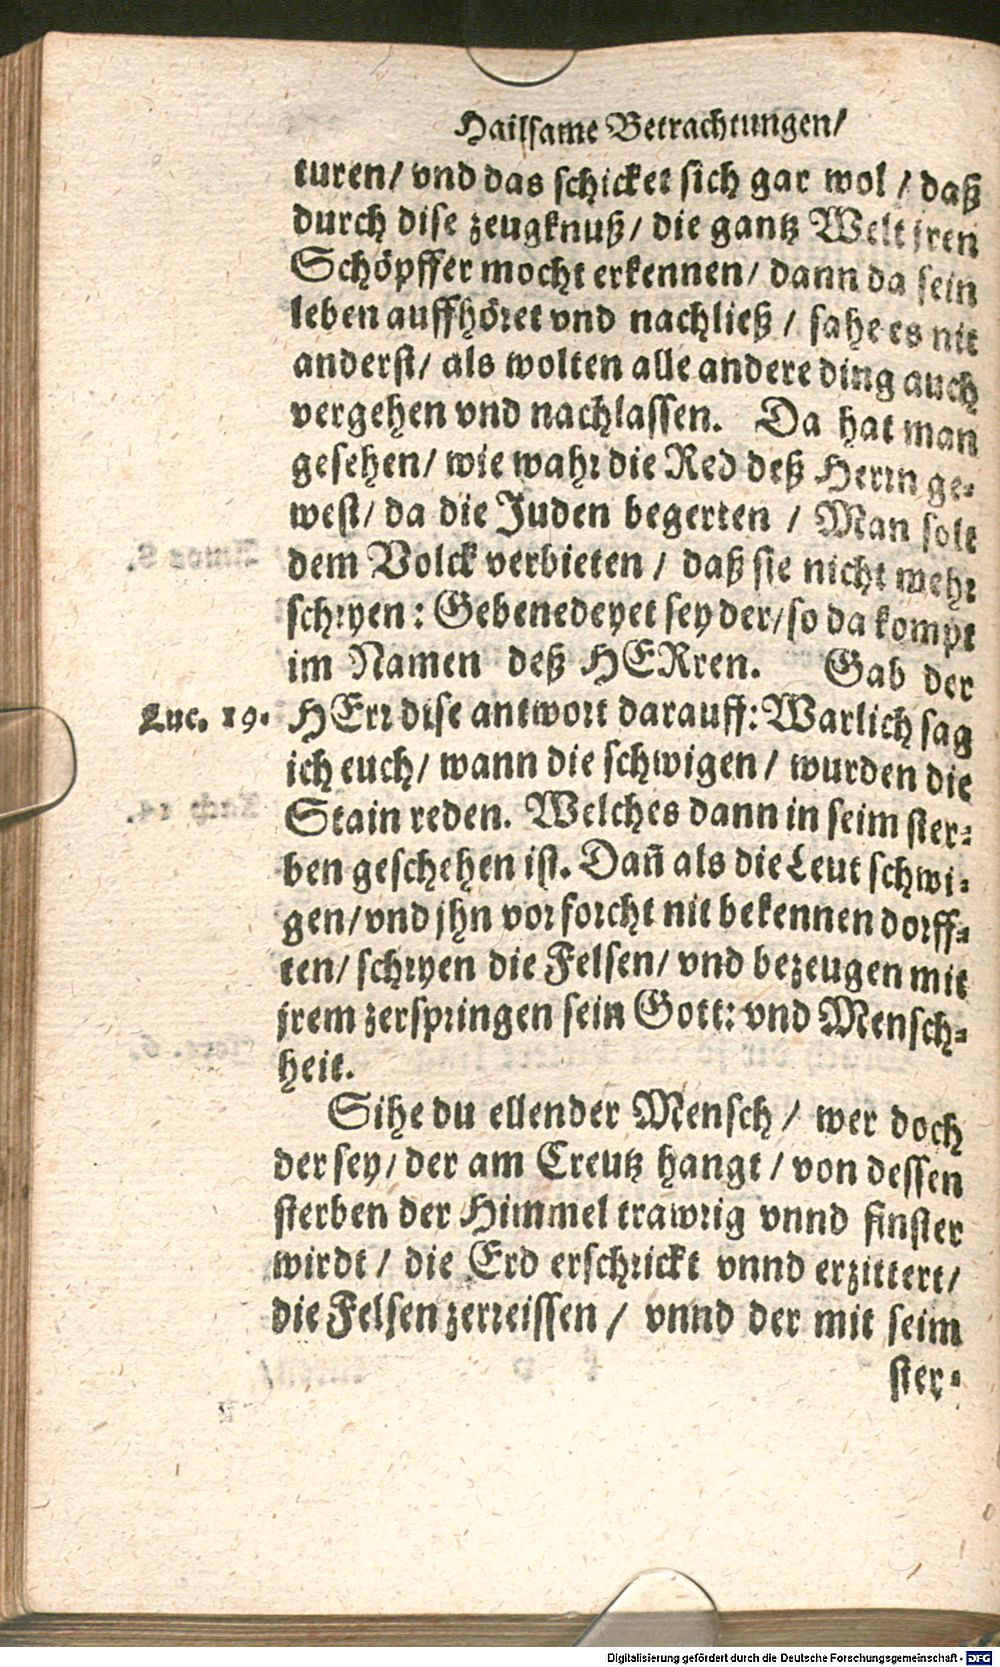 Hailsame Betrachtungen/
turen/ vnd das schicket sich gar wol / daß
durch dise zeugknuß/ die gantz Welt jren
Schöpffer mocht erkennen/ dann da sein
leben auffhöret vnd nachließ / sahe es nit
anderst/ als wolten alle andere ding auch
vergehen vnd nachlassen. Da hat man
gesehen/ wie wahr die Red deß Herrn ge-
west/ da die Juden begerten / Man solt
dem Volck verbieten / daß sie nicht mehr
schryen: Gebenedeyet sey der/ so da kompt
im Namen deß HERren. Gab der
Luc. 19. HErr dise antwort darauff: Warlich sag
ich euch/ wann die schwigen/ wurden die
Stain reden. Welches dann in seim ster-
ben geschehen ist. Dañ als die Leut schwi-
gen/ vnd jhn vor forcht nit bekennen dorff-
ten/ schryen die Felsen/ vnd bezeugen mit
jrem zerspringen sein Gott: vnd Mensch-
heit.
Sihe du ellender Mensch/ wer doch
der sey/ der am Creutz hangt/ von dessen
sterben der Himmel trawrig vnnd finster
wirdt/ die Erd erschrickt vnnd erzittert/
die Felsen zerreissen/ vnnd der mit seim
ster-
Digitalisierung gefördert durch die Deutsche Forschungsgemeinschaft - DFG